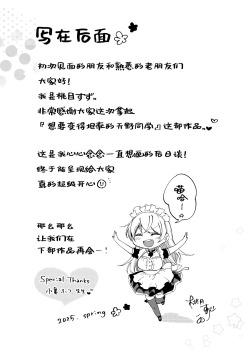 写在后面
初次见面的朋友和熟悉的老朋友们
大家好！
我是桃目すず。
非常感谢大家这次拿起
『想要变得坦率的天野同学』这部作品。
这是我心心念念一直想画的后日谈！
终于能呈现给大家
真的超级开心
那么那么
让我们在
下部作品再会－！
嘻哈～
Special Thanks
2025. spring